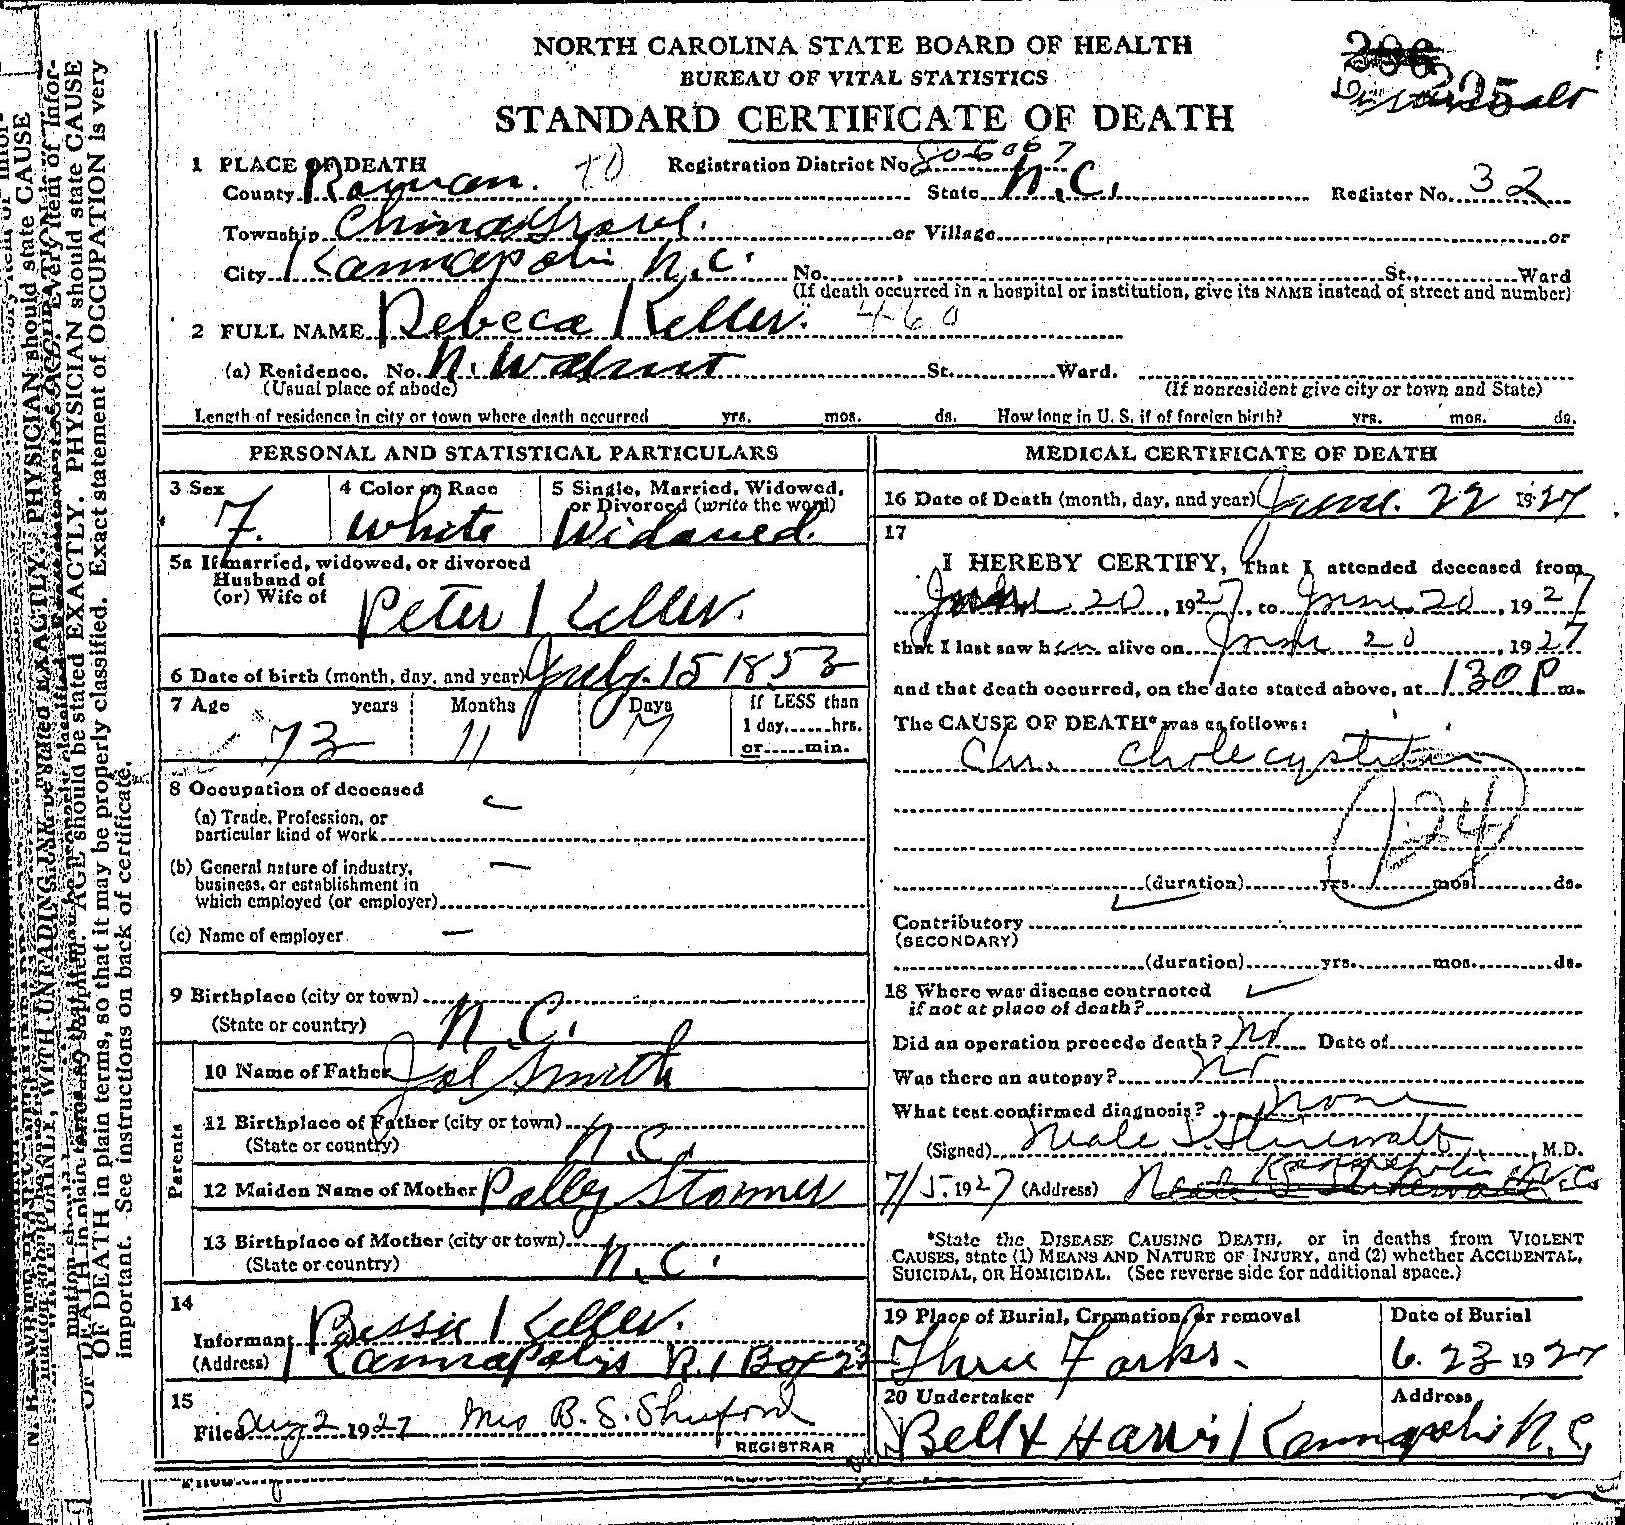 NORTH CAROLINA STATE BOARD OF HEALTH
BUREAU OF VITAL STATISTICS
STANDARD CERTIFICATE OF DEATH
225
1 PLACE OF DEATH Registration District No. 
County Rowan. State N.C. Register No. 32
Township China Grove. or Village or
City Kannapolis N.C. No. St., Ward
(If death occurred in a hospital or institution, give its NAME instead of street and number)
2 FULL NAME Rebeca Keller. 460
(a) Residence. No. N. Walnut St. Ward.
(Usual place of abode) (If nonresident give city or town and State)
Length of residence in city or town where death occurred yrs. mos. ds. How long in U. S. if of foreign birth? yrs. mos. ds.
PERSONAL AND STATISTICAL PARTICULARS
3 Sex 4 Color or Race 5 Single, Married, Widowed, or Divorced (write the word)
F. White Widowed.
5a If married, widowed, or divorced
Husband of
(or) Wife of Peter Keller.
6 Date of birth (month, day, and year) July. 15 1853
7 Age years Months Days If LESS than
1 day, hrs.
73 11 7 or min.
8 Occupation of deceased
(a) Trade, Profession, or
particular kind of work
(b) General nature of industry,
business, or establishment in
which employed (or employer)
(c) Name of employer
9 Birthplace (city or town)
(State or country) N.C.
Parents
10 Name of Father Joe Smith
11 Birthplace of Father (city or town)
(State or country) N.C.
12 Maiden Name of Mother Polley Stoner
13 Birthplace of Mother (city or town)
(State or country) N.C.
14
Informant Bessie Keller.
(Address) Kannapolis R.1 Box 23
15
Filed Aug 2 1927 Mrs B. S. Shuford
REGISTRAR
MEDICAL CERTIFICATE OF DEATH
16 Date of Death (month, day, and year) June. 22 1927
17
I HEREBY CERTIFY, that I attended deceased from
June 20, 1927, to June 20, 1927
that I last saw her alive on June 20, 1927
and that death occurred, on the date stated above, at 130 P m.
The CAUSE OF DEATH* was as follows:
Chr. Cholecystitis
124
(duration) yrs. mos. ds.
Contributory
(SECONDARY)
(duration) yrs. mos. ds.
18 Where was disease contracted
if not at place of death?
Did an operation precede death? No Date of
Was there an autopsy? No
What test confirmed diagnosis? none
(Signed) Neale S. Stirewalt, M.D.
7/5. 1927 (Address) Kannapolis N.C.
*State the DISEASE CAUSING DEATH, or in deaths from VIOLENT
CAUSES, state (1) MEANS AND NATURE OF INJURY, and (2) whether ACCIDENTAL,
SUICIDAL, OR HOMICIDAL. (See reverse side for additional space.)
19 Place of Burial, Cremation, or removal Date of Burial
Three Forks. 6. 23 1927
20 Undertaker Address
Bell & Harris Kannapolis N.C.
OF DEATH in plain terms, so that it may be properly classified. Exact statement of OCCUPATION is very
important. See instructions on back of certificate.